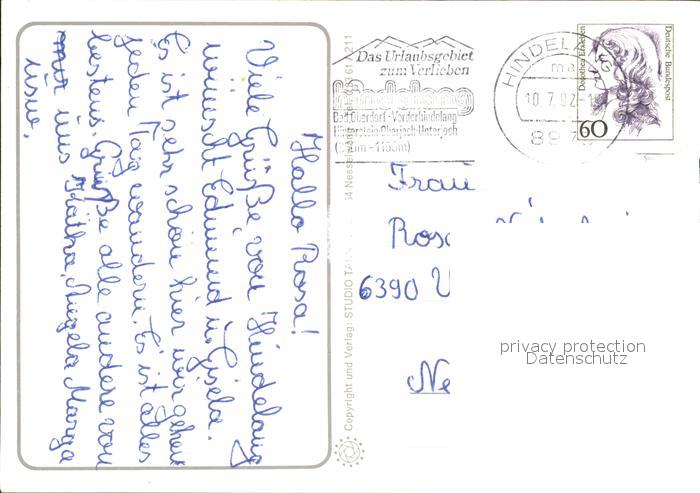 Hallo Rosa!
Viele Grüße von Hindelang
wünscht Edmund u. Gisela.
Es ist sehr schön hier wir gehen
jeden Tag wandern. Es ist alles
bestens. Grüße alle andere von
uns Käthra, Angela, Marga
usw.
Das Urlaubsgebiet
zum Verlieben
Bad Oberdorf-Vorderhindelang
Hinterstein-Oberjoch-Unterjoch
-1155m)
HINDELA
10.7.92-1
897
Dorothea Erxleben
Deutsche Bundespost
60
Frau
Ros
6390 U
Ne
privacy protection
Datenschutz
Copyright und Verlag: STUDIO TA
14 Nesselwang